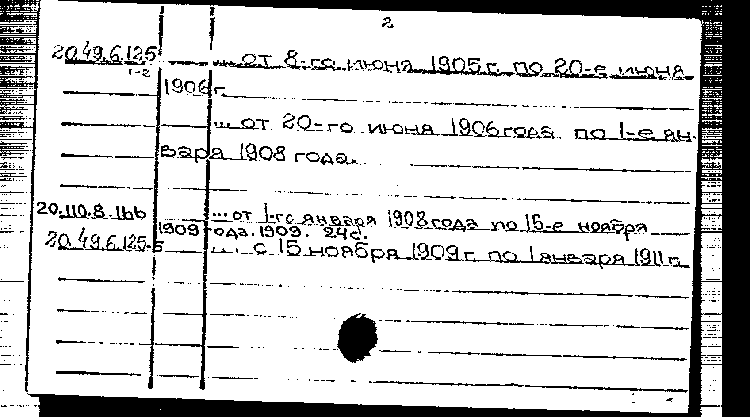 2
20.49.6.125 ... от 8-го июня 1905 г. по 20-е июня
1-2
1906 г.
... от 20-го июня 1906 года по 1-е ян-
варя 1908 года.
20.110.8.166 ... от 1-го января 1908 года по 15-е ноября
1909 года. 1909. 24 с.
20.49.6.125-5 ... с 15 ноября 1909 г. по 1 января 1911 г.